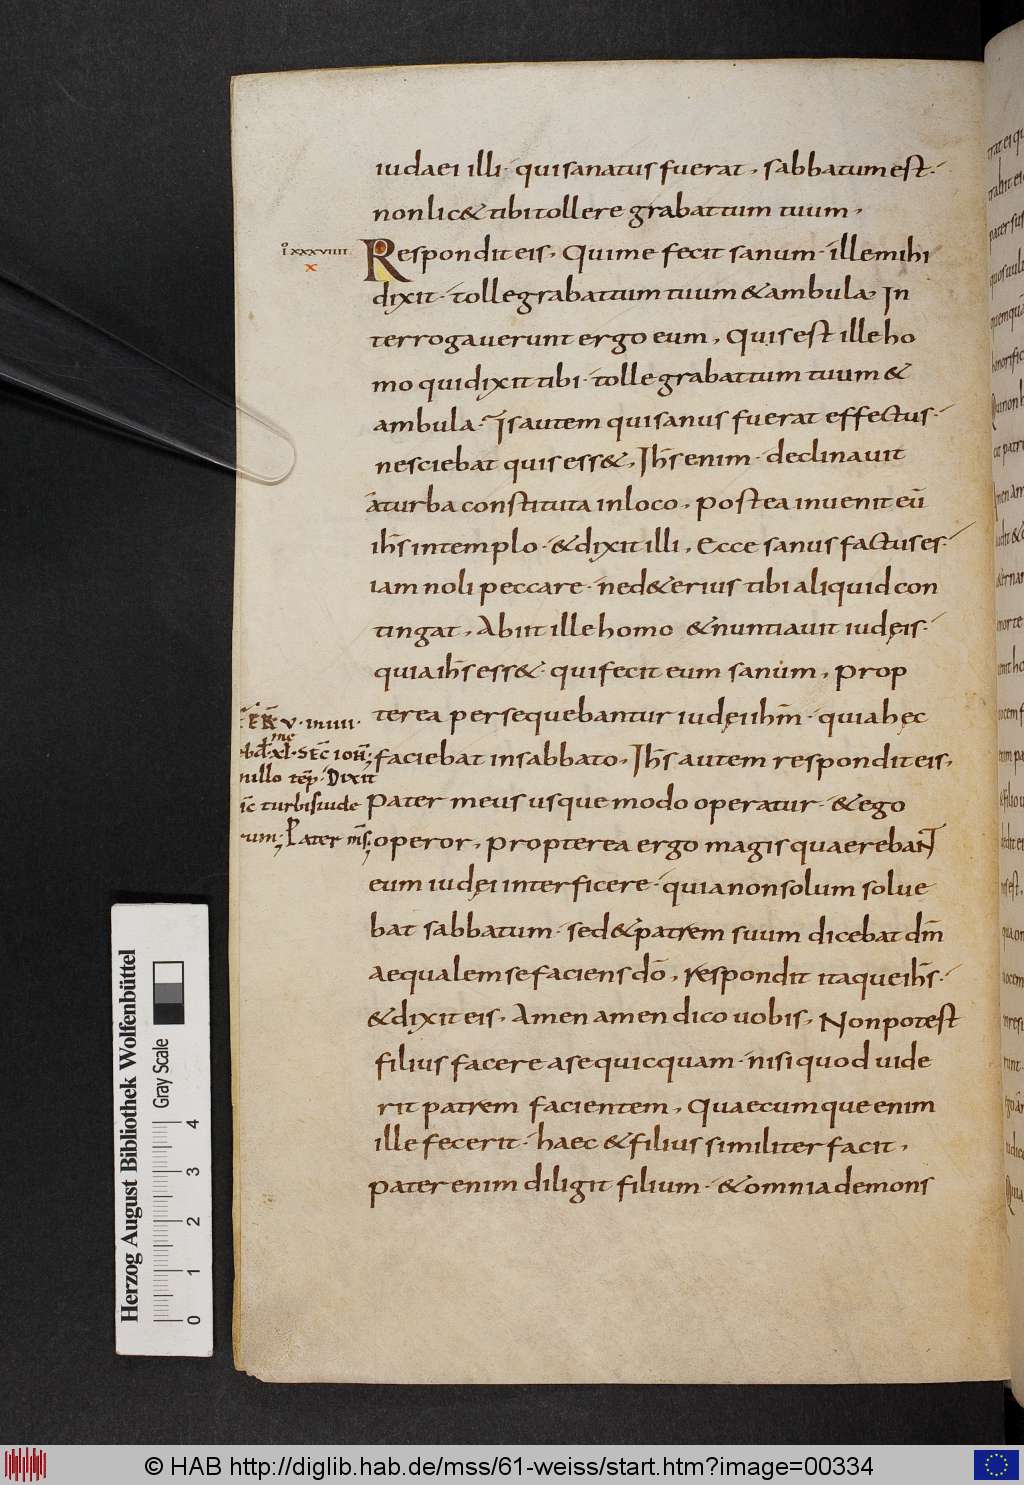 iudaei illi· qui sanatus fuerat, sabbatum est·
non lic& tibi tollere grabattum tuum,
Io xxxviiii
x
Respondit eis, Qui me fecit sanum· ille mihi
dixit· tolle grabattum tuum & ambula, In
terrogauerunt ergo eum, Quis est ille ho
mo qui dixit tibi· tolle grabattum tuum &
ambula· Is autem qui sanus fuerat effectus·
nesciebat quis ess&, Ihs̄ enim· declinauit
a turba constituta in loco, postea inuenit eū
ihs̄ in templo· & dixit illi, Ecce sanus factus es·
iam noli peccare· ne d&erius tibi aliquid con
tingat, Abiit ille homo & nuntiauit iudęis·
quia ihs̄ ess&· qui fecit eum sanum, prop
terea persequebantur iudęi ihm̄· quia hęc
faciebat in sabbato, Ihs̄ autem respondit eis,
pater meus usque modo operatur· & ego
operor, propterea ergo magis quaerebant
eum iudęi interficere· quia non solum solue
bat sabbatum· sed & patrem suum dicebat dm̄
aequalem se faciens dō, respondit itaque ihs̄·
& dixit eis, Amen amen dico uobis, Non potest
filius facere a se quicquam· nisi quod uide
rit patrem facientem, Quaecumque enim
ille fecerit· haec & filius similiter facit,
pater enim diligit filium· & omnia demons
xl· sec̄ ioh̄
nullo tēp· Dixit
turbis iude
Pater m̄s
Herzog August Bibliothek Wolfenbüttel
Gray Scale
0 1 2 3 4
© HAB http://diglib.hab.de/mss/61-weiss/start.htm?image=00334